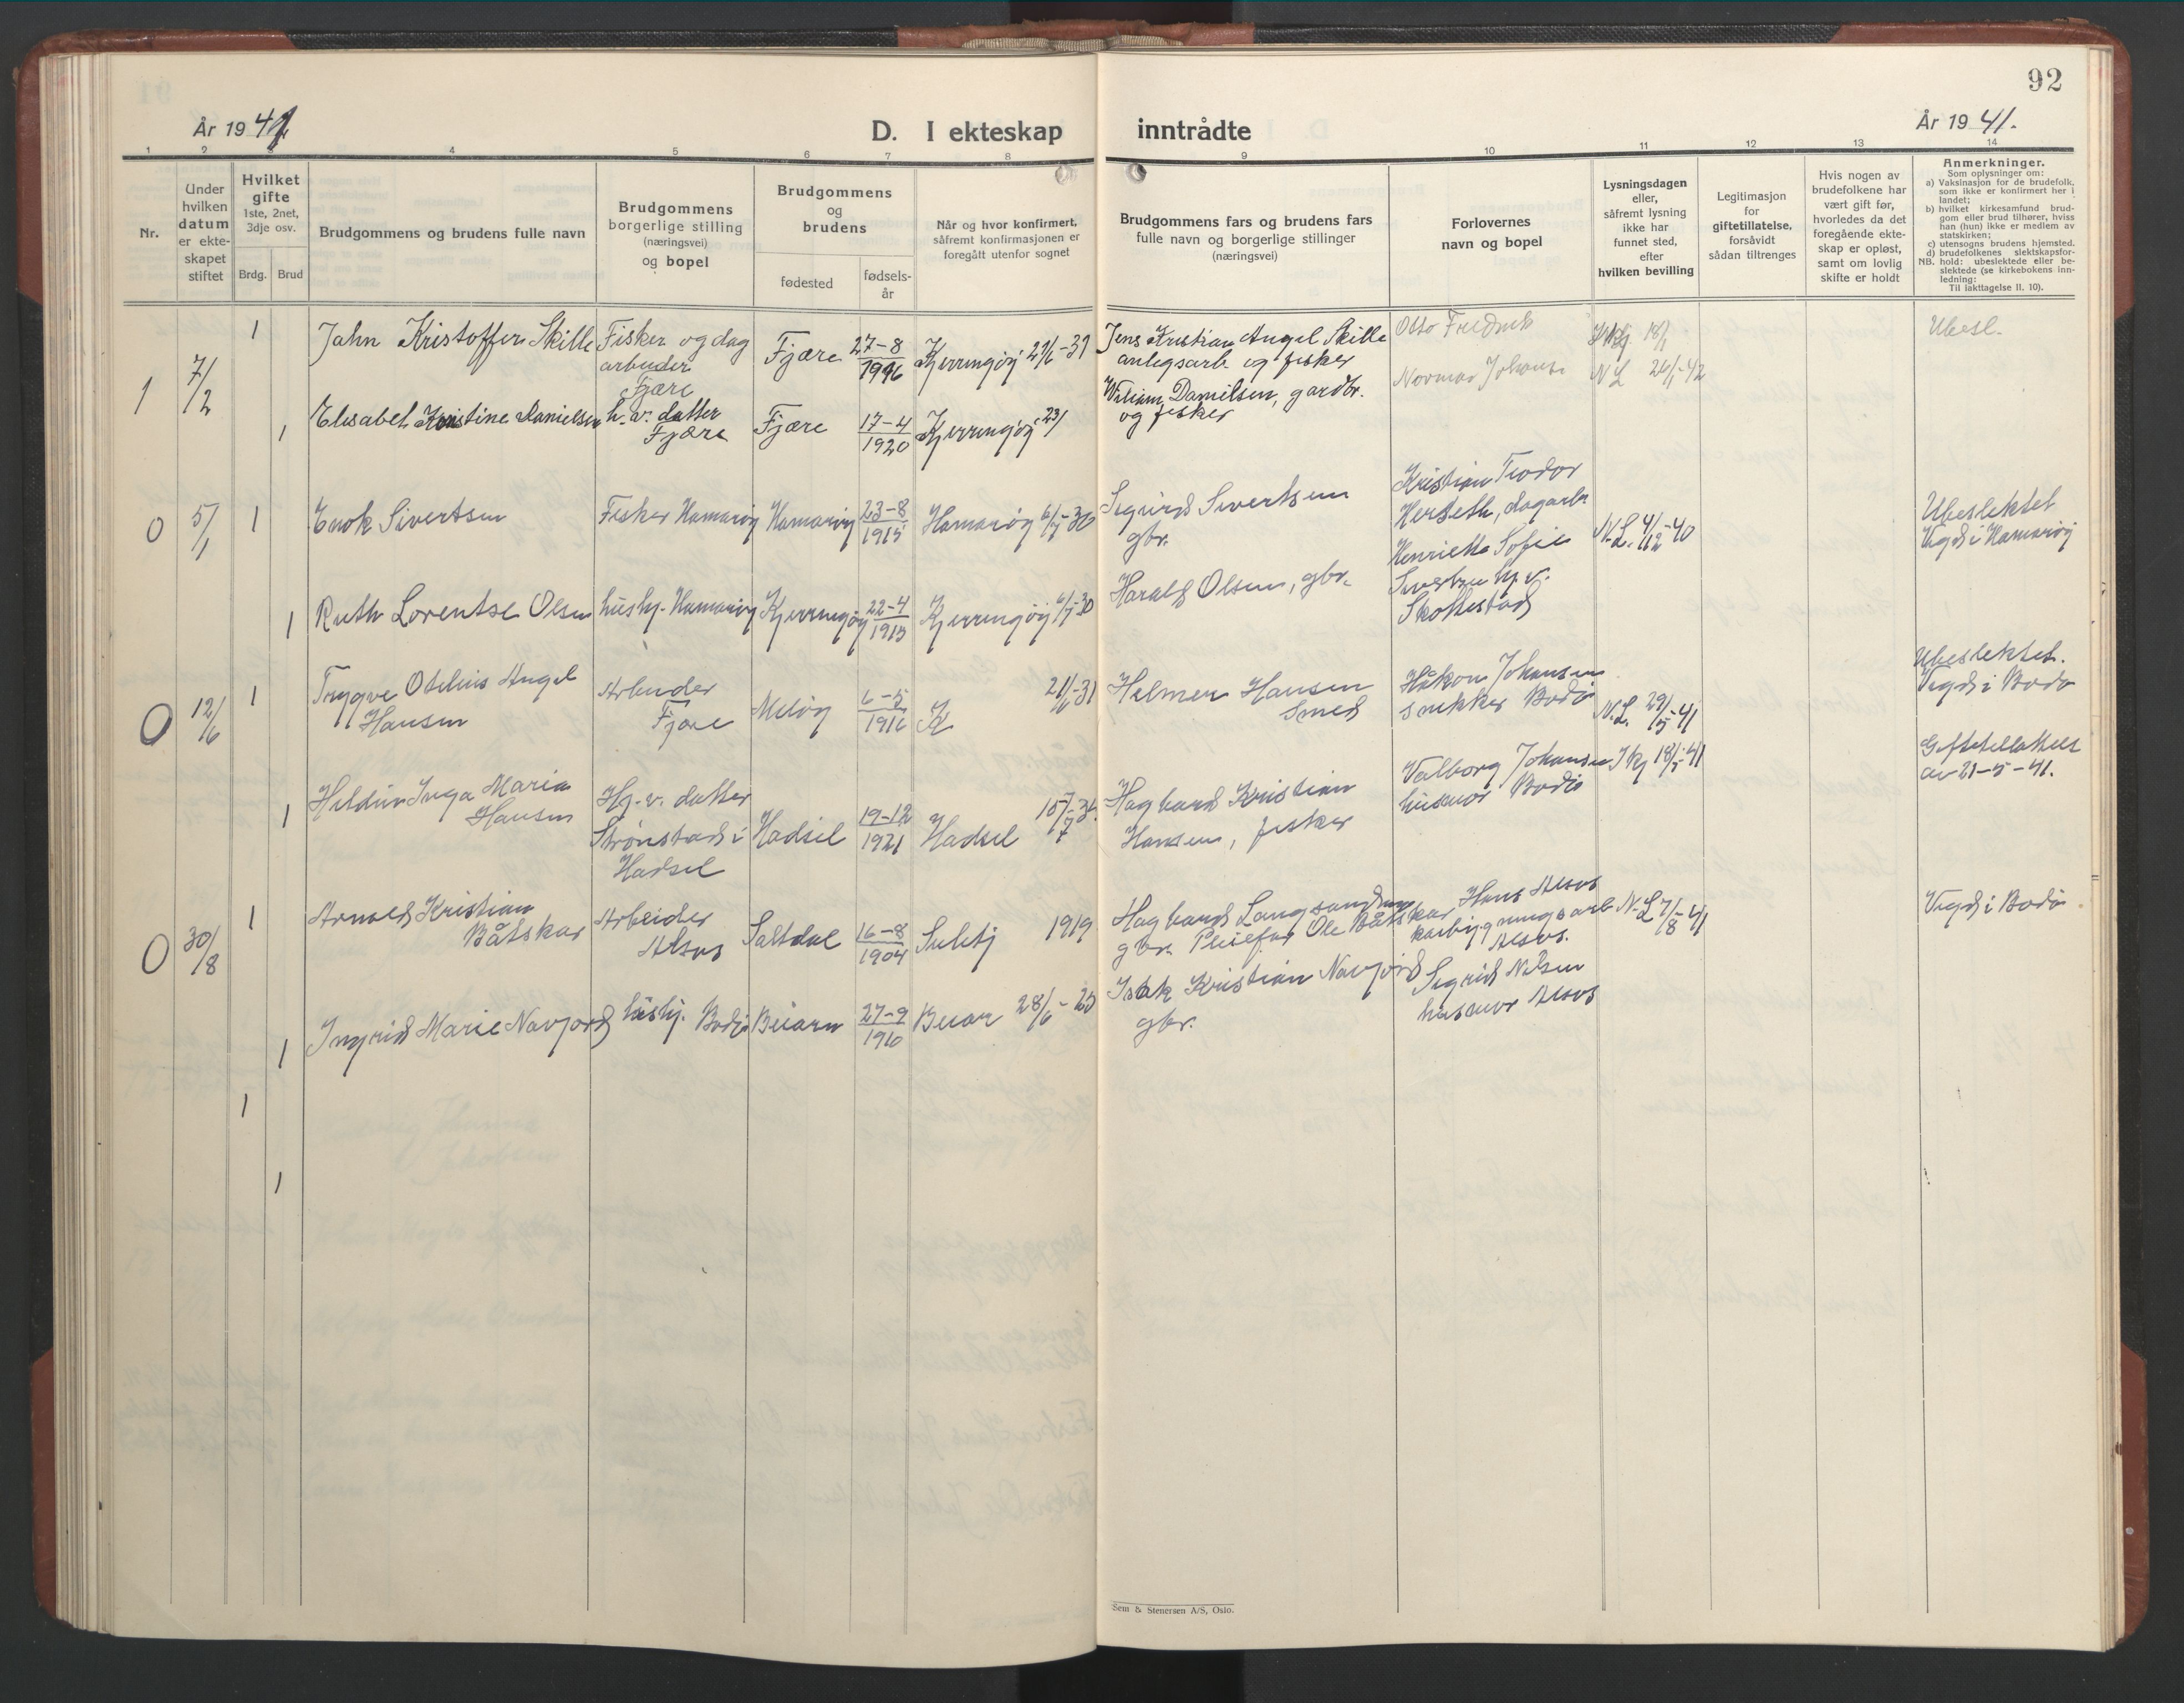 92
År 1941
D. I ekteskap inntrådte
År 1941.
1 2 3 4 5 6 7 8 9 10 11 12 13 14
Nr.
Under
hvilken
datum
er ekte-
skapet
stiftet
Hvilket
gifte
1ste, 2net,
3dje osv.
Brdg. Brud
Brudgommens og brudens fulle navn
Brudgommens
borgerlige stilling
(næringsvei)
og bopel
Brudgommens
og
brudens
fødested
fødsels-
år
Når og hvor konfirmert,
såfremt konfirmasjonen er
foregått utenfor sognet
Brudgommens fars og brudens fars
fulle navn og borgerlige stillinger
(næringsvei)
Forlovernes
navn og bopel
Lysningsdagen
eller,
såfremt lysning
ikke har
funnet sted,
efter
hvilken bevilling
Legitimasjon
for
giftetillatelse,
forsåvidt
sådan tiltrenges
Hvis nogen av
brudefolkene har
vært gift før,
hvorledes da det
foregående ekte-
skap er opløst,
samt om lovlig
skifte er holdt
Anmerkninger.
Som oplysninger om:
a) Vaksinasjon for de brudefolk,
som ikke er konfirmert her i
landet;
b) hvilket kirkesamfund brud-
gom eller brud tilhører, hviss
han (hun) ikke er medlem av
statskirken;
c) utensogns brudens hjemsted.
d) brudefolkenes slektskapsfor-
NB. hold: ubeslektede eller be-
slektede (se kirkebokens inn-
ledning:
Til iakttagelse II. 10).
1 7/2 1
Jahn Kristoffer Skille
Fisker og dag
arbeider
Fjære
Fjære 27-8 1916
Kjerringøy 21/6-31
Jens Kristian Angel Skille
anlegsarb. og fisker
Otto Fredrik
18/1
Ubesl.
1 Elisabet Kristine Danielsen
h.v. datter
Fjære
Fjære 17-4 1920
Kjerringøy
Wiliam Danielsen, gardbr.
og fisker
Normar Johans
NL 26/1-42
0 5/1 1
Enok Sivertsen
Fisker Hamarøy
Hamarøy 23-8 1915
Hamarøy 6/7-30
Sigurd Sivertsen
gbr.
Kristian Teodor
Kerseth, dagarb.
N.L. 4/12-40
Ubeslektet
Vigd i Hamarøy
1 Ruth Lorentse Olsen
hushj. Hamarøy
Kjerringøy 22-4 1915
Kjerringøy 6/7-30
Harald Olsen, gbr.
Henriette Sofie
Sivertsen hj.v.
Skottestad
0 12/6 1
Trygve Otelius Angel
Hansen
Arbeider
Fjære
Meløy 6-5 1916
K 21/6-31
Helmer Hansen
Smed
Håkon Johansen
snekker Bodø
N.L. 29/5-41
Ubeslektet.
Vigd i Bodø
1 Heldiun Inga Maria
Hansen
Hj.v. datter
Strønstad i
Hadsel
Hadsel 19-12 1921
Hadsel
Hagbard Kristian
Hansen, fisker
Valborg Johansen
husmor Bodø
18/5-41
Giftetillatelse
av 21-5-41.
0 30/8 1
Arnold Kristian
Båtskar
Arbeider
Alsos
Saltdal 16-8 1904
Sulitj 1919
Hagbard Langsand
gbr. Pleiefar Ole Båtskar
Hans Alsos
Alsos.
N.L 7/8-41
Vigd i Bodø
1 Ingrid Marie Navjord
hushj. Bodø
Beiarn 27-9 1910
Beiar 28/6-25
Isak Kristian Navjord
gbr.
Sigrid Nilsen
husmor Alsos
1
1
Sem & Stenersen A/S, Oslo.